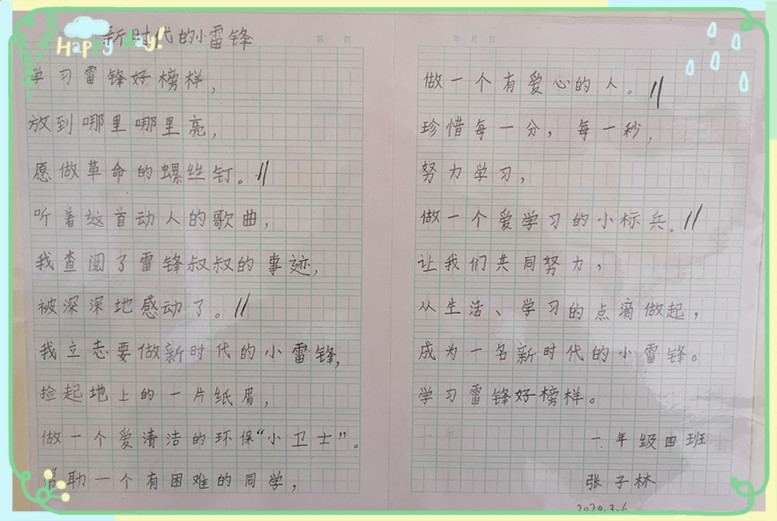 新时代的小雷锋
Happy day!
学习雷锋好榜样，
放到哪里哪里亮，
愿做革命的螺丝钉。//
听着这首动人的歌曲，
我查阅了雷锋叔叔的事迹，
被深深地感动了。//
我立志要做新时代的小雷锋，
捡起地上的一片纸眉，
做一个爱清洁的环保“小卫士”。
帮助一个有困难的同学，
年 月 日
做一个有爱心的人。//
珍惜每一分，每一秒，
努力学习，
做一个爱学习的小标兵。//
让我们共同努力，
从生活、学习的点滴做起，
成为一名新时代的小雷锋。
学习雷锋好榜样。
一.年级四班
张子林
2020.3.6